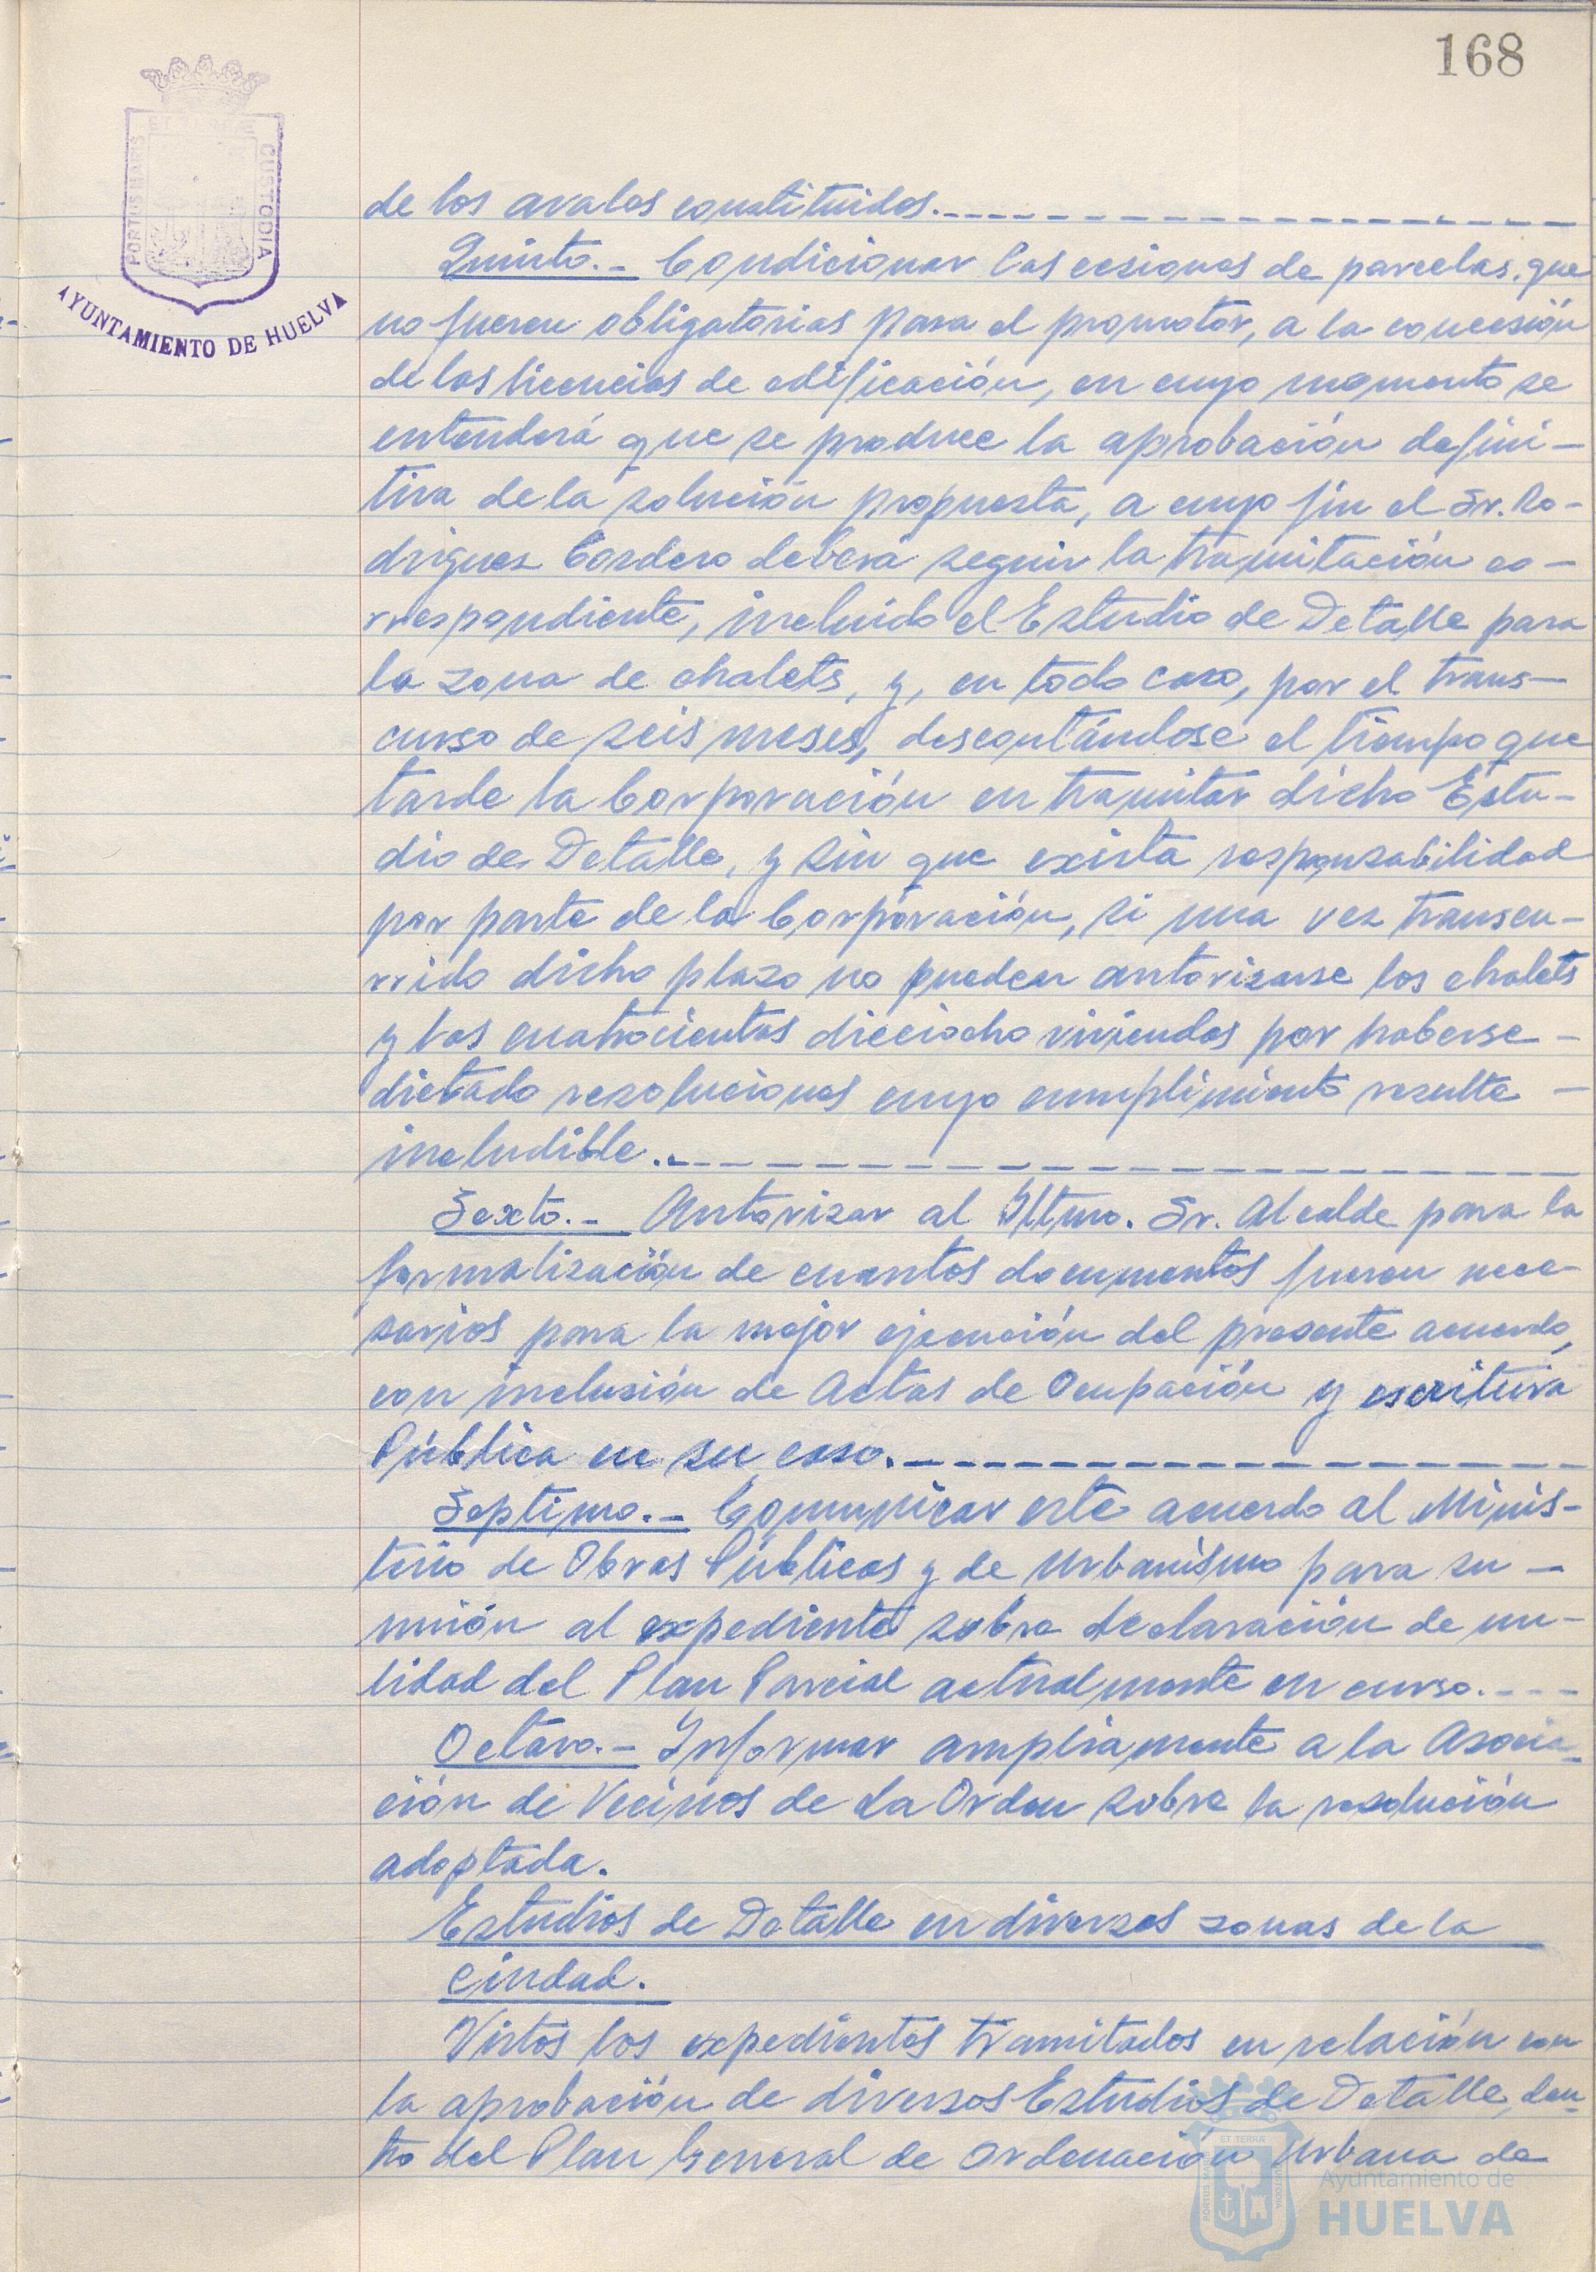 168
PORTUS MARIS
CUSTODIA
AYUNTAMIENTO DE HUELVA
de los avales constituidos.
Quinto.- Condicionar las cesiones de parcelas, que
no fueren obligatorias para el promotor, a la concesión
de las licencias de edificación, en cuyo momento se
entenderá que se produce la aprobación defini-
tiva de la solución propuesta, a cuyo fin el Sr. Ro-
driguez Cordero deberá seguir la tramitación co-
rrespondiente, incluido el Estudio de Detalle para
la zona de chalets, y, en todo caso, por el trans-
curso de seis meses, descontándose el tiempo que
tarde la Corporación en tramitar dicho Estu-
dio de Detalle, y sin que exista responsabilidad
por parte de la Corporación, si una vez transcu-
rrido dicho plazo no pueden autorizarse los chalets
y las cuatrocientas dieciocho viviendas por haberse-
dictado resoluciones cuyo cumplimiento resulte -
ineludible.
Sexto.- Autorizar al Iltmo. Sr. Alcalde para la
formalización de cuantos documentos fueren nece-
sarios para la mejor ejecución del presente acuerdo,
con inclusión de Actas de Ocupación y escritura
Pública en su caso.
Septimo.- Comunicar este acuerdo al Minis-
terio de Obras Públicas y de Urbanismo para su -
unión al expediente sobre declaración de nu-
lidad del Plan Parcial actualmente en curso.
Octavo.- Informar ampliamente a la Asocia-
ción de Vecinos de La Orden sobre la resolución
adoptada.
Estudios de Detalle en diversas zonas de la
ciudad.
Vistos los expedientes tramitados en relación con
la aprobación de diversos Estudios de Detalle, den-
tro del Plan General de Ordenación Urbana de
ET TERRAE
PORTUS MARIS
CUSTODIA
Ayuntamiento de
HUELVA